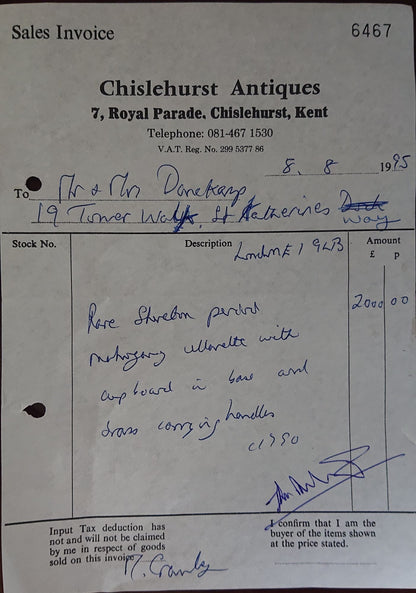 Sales Invoice
6467
Chislehurst Antiques
7, Royal Parade, Chislehurst, Kent
Telephone: 081-467 1530
V.A.T. Reg. No. 299 5377 86
8. 8 1995
To Mr & Mrs
19 Tower Walk, St Katherines Dock
Way
Stock No.
Description
London E1 9LB
Amount
£ p
Rare Sheraton period
2000 00
mahogany cellarette with
cupboard in base and
brass carrying handles
c1790
Input Tax deduction has
not and will not be claimed
by me in respect of goods
sold on this invoice
I confirm that I am the
buyer of the items shown
at the price stated.